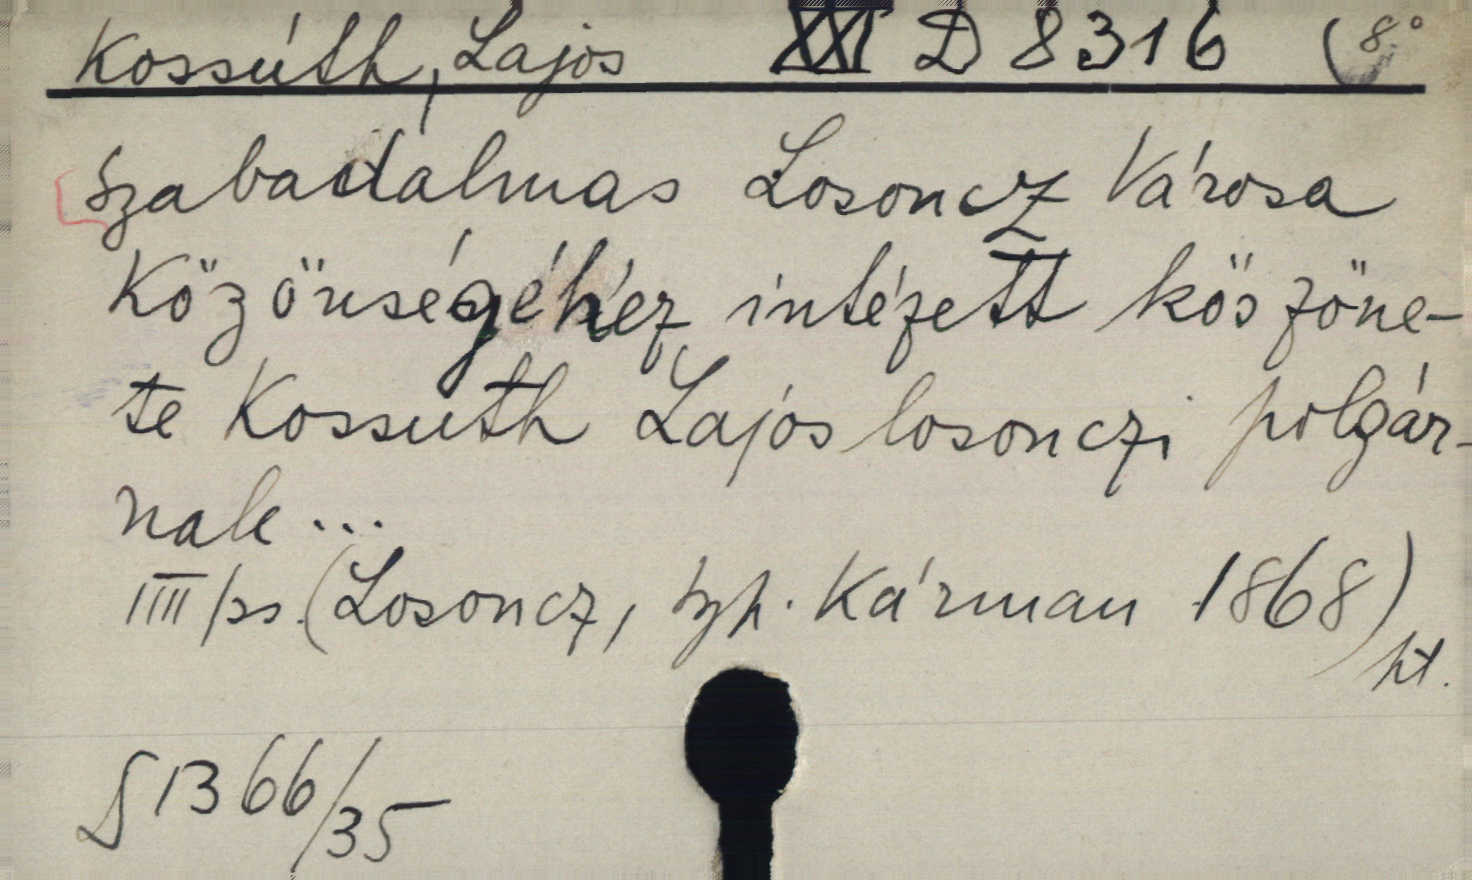 Kossúth, Lajos XXI D 8316 (8°
Szabadalmas Losoncz Városa
Közönségéhez intézett köszöne-
te Kossuth Lajos losonczi polgár-
nak...
IIII/ss. (Losoncz, typ. Kármán 1868)
kt.
§ 1366/35